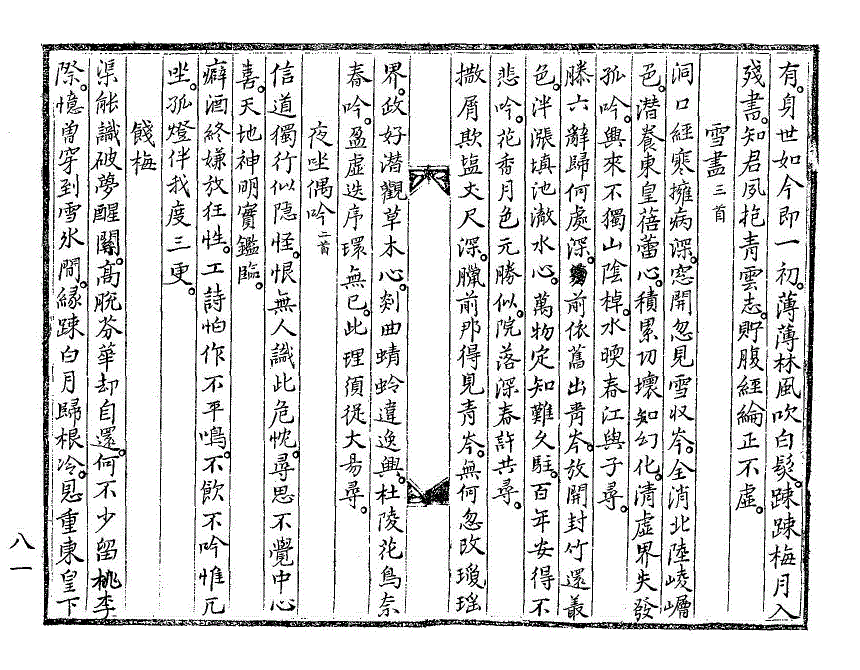 有身世如今即一初。薄薄林風吹白髮。踈踈梅月入
殘書。知君夙抱青雲志。貯腹經綸正不虛。
雪盡三首
洞口經寒擁病深。窓開忽見雪収岑。全消北陸崚嶒
色。潛養東皇蓓蕾心。積累功壞知幻化。清虛界失發
孤吟。興來不獨山陰棹。水暎春江與子尋。
滕六辭歸何處深。前依舊出靑岑。放開封竹還叢
色。泮漲填池澈水心。萬物定知難久駐。百年安得不
悲吟。花香月色元勝似。院落深春許共尋。
撒屑欺塩丈尺深。臘前那得見青岑。無何忽改瓊瑤
界。政好潛觀草木心。剡曲蜻蛉違逸興。杜陵花鳥奈
春吟。盈虛迭序環無已。此理須從大易尋。
夜坐偶吟二首
信道獨行似隱怪。恨無人識此危忱。尋思不覺中心
喜。天地神明實鑑臨。
癖酒終嫌放狂性。工詩怕作不平鳴。不飮不吟惟兀
坐。孤燈伴我度三更。
餞梅
渠能識破夢醒關。高脫芬華却自還。何不少留桃李
際。憶曾穿到雪氷間。緣踈白月歸根冷。恩重東皇下
八一